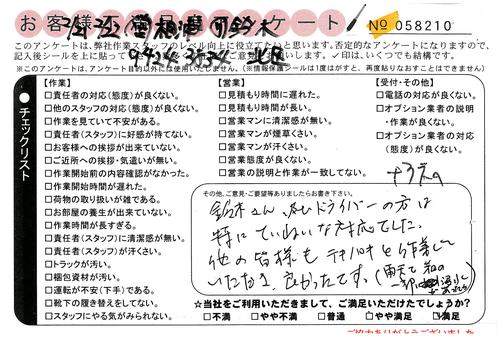 お客様アンケート
No 058210
このアンケートは、弊社作業スタッフのレベル向上に役立てたいと思います。否定的なアンケートになりますので、
記入後シールを上に貼って
※このアンケートは、アンケート目的以外には使用いたしません。(※情報保護シールは1度はがすと、再度貼りなおすことはできません)
チェックリスト
【作業】
□責任者の対応(態度)が良くない。
□他のスタッフの対応(態度)が良くない。
□作業を見ていて不安がある。
□責任者(スタッフ)に好感が持てない。
□お客様への挨拶が出来ていない。
□ご近所への挨拶・気遣いが無い。
□作業開始前の内容確認がなかった。
□作業開始時間が遅れた。
□荷物の取り扱いが雑である。
□お部屋の養生が出来ていない。
□作業時間が長すぎる。
□責任者(スタッフ)に清潔感が無い。
□責任者(スタッフ)が汗くさい。
□トラックが汚い。
□梱包資材が汚い。
□運転が不安(下手)である。
□靴下の履き替えをしてない。
□スタッフにやる気がみられない。
【営業】
□見積もり時間に遅れた。
□見積もり時間が長い。
□営業マンに清潔感が無い。
□営業マンが煙草くさい。
□営業マンが汗くさい。
□営業態度が良くない。
□営業の説明と作業が一致してない。
【受付・その他】
□電話の対応が良くない。
□オプション業者の説明
・作業が良くない。
□オプション業者の対応
(態度)が良くない。
その他、ご意見・ご要望等ありましたらお書き下さい。
鈴木さん、及びドライバーの方は
特にていねいな対応でした。
他の皆様もテキパキと作業して
いただき、良かったです。
☆当社をご利用いただきまして、ご満足いただけたでしょうか?
□不満 □やや不満 □普通 □やや満足 □満足
ご協力ありがとうございました